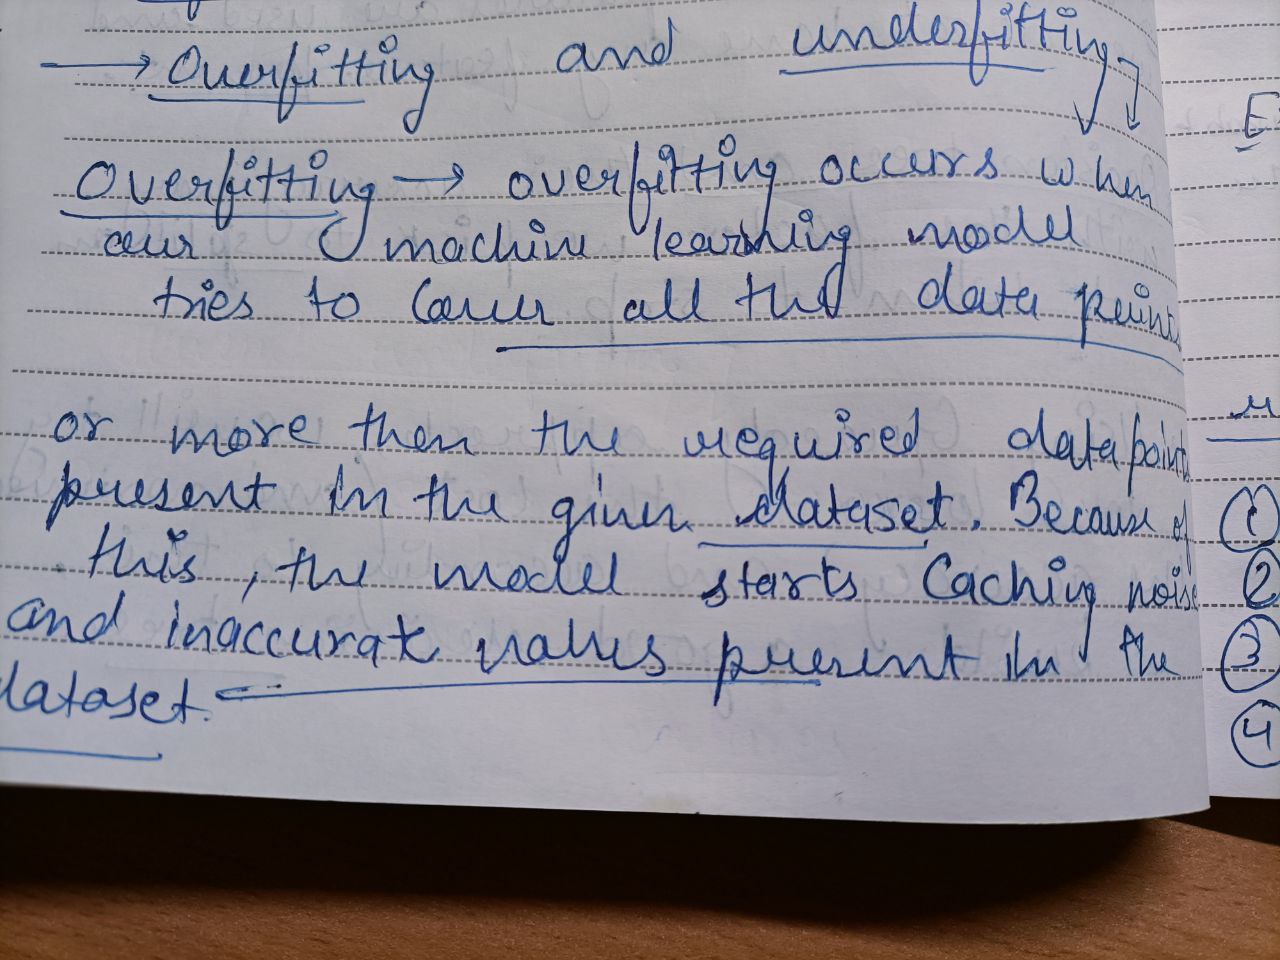 → Overfitting and underfitting
Overfitting → overfitting occurs when
our machine learning model
tries to cover all the data points
or more then the required datapoints
present in the given dataset. Because of
this, the model starts Caching noise
and inaccurate values present in the
dataset.
E
1
2
3
4